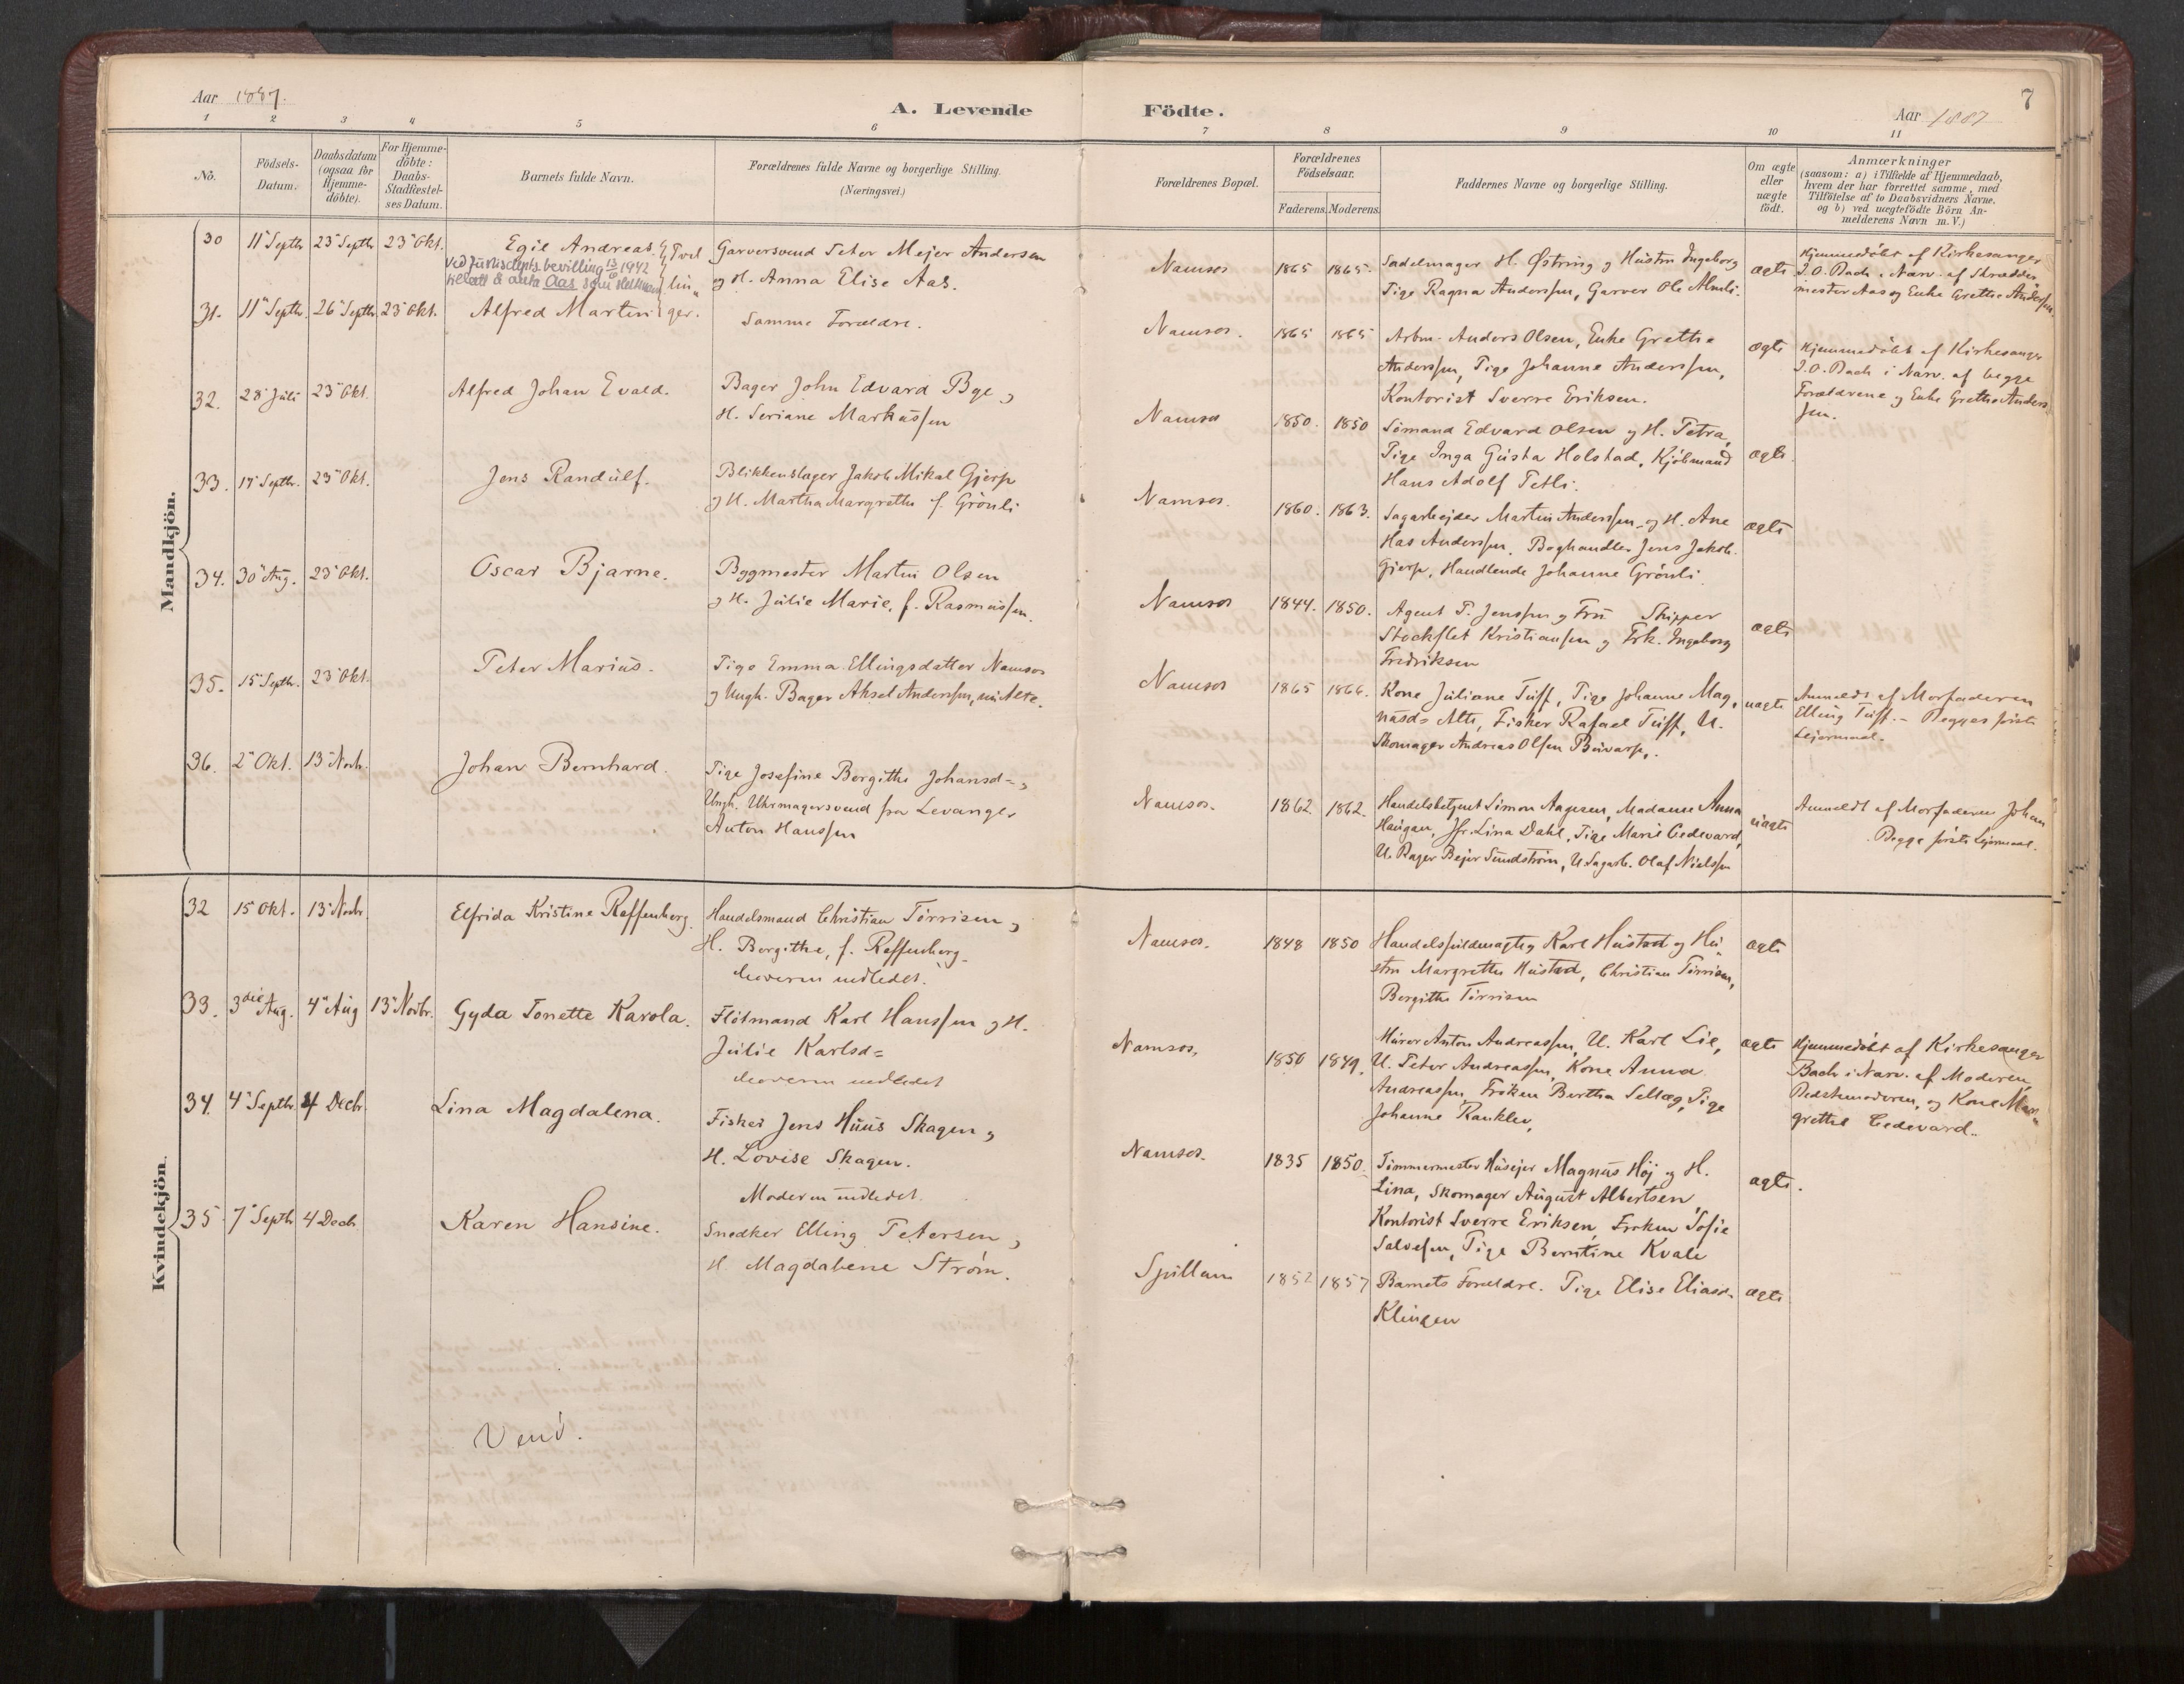 Aar 1887.
A. Levende Födte.
7
Aar 1887
1 2 3 4 5 6 7 8 9 10 11
No.
Födsels-
Datum.
Daabsdatum
(ogsaa for
Hjemme-
döbte).
For Hjemme-
döbte:
Daabs-
Stadfæstel-
ses Datum.
Barnets fulde Navn.
Forældrenes fulde Navne og borgerlige Stilling.
(Næringsvei.)
Forældrenes Bopæl.
Forældrenes
Födselsaar.
Faderens. Moderens.
Faddernes Navne og borgerlige Stilling.
Om ægte
eller
uægte
födt.
Anmærkninger
(saasom: a) i Tilfælde af Hjemmedaab,
hvem der har forrettet samme, med
Tilföielse af to Daabsvidners Navne,
og b) ved uægtefödte Börn An-
melderens Navn m. V.)
Mandkjön.
30 11" Septbr 23" Septbr 23" Okt. Egil Andreas. Tvil
Ved Justisdepts. bevilling 13/6 1942
tillatt å anta Aas som slektsnavn
lin"
Garversvend Peter Mejer Andersen
og H. Anna Elise Aas.
Namsos 1865 1865.
Sadelmager H. Østring og Hustru Ingeborg
Pige Ragna Anderssen, Garver Ole Almli.
ægte
Hjemmedöbt af Kirkesanger
J. O. Bach i Nærv. af Skrædder
mester Aas og Enke Grethe Anderssen.
31. 11" Septbr. 26" Septbr 23" Okt. Alfred Martin ger.
Samme Forældre.
Namsos. 1865 1865
Arbm. Anders Olsen, Enke Grethe
Anderssen, Pige Johanne Anderssen,
Kontorist Sverre Eriksen.
ægte
Hjemmedöbt af Kirkesanger
J. O. Bach i Nærv. af begge
Forældrene og Enke Grethe Anders
sen.
32. 28" Juli 23" Okt. Alfred Johan Evald.
Bager John Edvard Bye og
H. Seriane Markussen
Namsos 1850. 1850
Sömand Edvard Olsen og H. Petra,
Pige Inga Gusta Holstad, Kjöbmand
Hans Adolf Tetli.
ægte.
33. 17" Septbr. 23" Okt. Jens Randulf.
Blikkenslager Jakob Mikal Gjerp
og H. Martha Margrethe f. Grönli
Namsos. 1860. 1863.
Sagarbejder Martin Anderssen og H. Ane
Has Anderssen, Boghandler Jens Jakob
Gjerp, Handlende Johanne Grönli.
ægte
34. 30" Aug. 23" Okt. Oscar Bjarne.
Bygmester Martin Olsen
og H. Julie Marie, f. Rasmussen.
Namsos 1844. 1850.
Agent P. Jenssen og Fru Skipper
Stockflet Kristiansen og Frk. Ingeborg
Fredriksen
ægte
35. 15" Septbr. 23" Okt. Peter Marius.
Pige Emma Ellingsdatter Namsos
og Ungk. Bager Aksel Anderssen,
Namsos 1865 1866.
Kone Juliane Tuff, Pige Johanne Mag,
nusd= Alte, Fisker Rafael Tuff, U.
Skomager Andreas Olsen
uægte
Anmeldt af Morfaderen
Elling Tuff. – Begges förste
Lejermaal.
36. 2" Okt. 13" Novb. Johan Bernhard.
Pige Josefine Bergithe Johansd= og
Ungk. Uhrmagersvend fra Levanger
Anton Hanssen
Namsos. 1862. 1862.
Handelsbetjent Simon Aagesen, Madame Anna
Haugan, Jfr. Lina Dahl, Pige Marie Cedevard,
U. Bager Bejer Sundström, U. Sagarb. Olaf Nielssen
uægte
Anmeldt af Morfaderen Johan
. Begge förste Lejermaal.
Kvindekjön.
32 15 Okt. 13" Novbr. Elfrida Kristine Reffenberg.
Handelsmand Christian Törrisen og
H. Bergithe, f. Reffenberg.
Moderen indledet.
Namsos. 1848 1850
Handelsfuldmægtig Karl Hustad og Hu"
stru Margrethe Hustad, Christian Törrisen,
Bergithe Törrisen
ægte
33. 3die Aug. 4" Aug 13" Novbr. Gyda Tonette Karola.
Flötmand Karl Hanssen og H.
Julie Karlsd=
Moderen indledet
Namsos, 1850 1849.
Murer Anton Andreassen, U. Karl Lie,
U. Peter Andreassen, Kone Anna
Andreassen, Fröken Bertha Sellæg, Pige
Johanne Ranklev,
ægte
Hjemmedöbt af Kirkesanger
Bach i Nærv. af Moderen,
Bedstemoderen, og Kone Mar"
grethe Cedevard.
34. 4" Septbr. 4 Decbr. Lina Magdalena.
Fisker Jens Huus Skagen og
H. Lovise Skagen.
Moderen indledet.
Namsos. 1835 1850.
Tömmermester Husejer Magnus Höj og H.
Lina, Skomager August Albertsen,
Kontorist Sverre Eriksen, Fröken Sofie
Salvesen, Pige Berntine Kvale
ægte.
35 7" Septbr 4 Decb. Karen Hansine.
Snedker Elling Petersen og
H. Magdalene Strøm.
Spillum 1852 1857
Barnets Forældre. Pige Elise Eliasd.
Klingen
ægte
Vend.